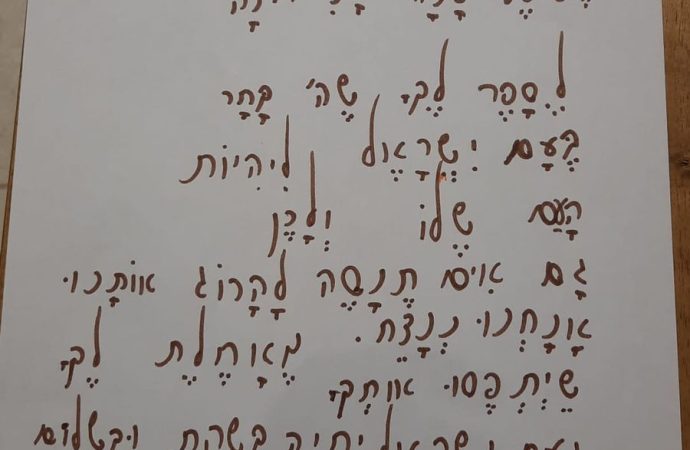 לְסָפֶר לְךָ שֶׁה' בָּחָר
בְּעָם יִשְׂרָאֶל לִיהִיוֹת
הָעַם שֶׁלוֹ וְלָכֶן
גָם אִים תְנָסֶה לָהָרוֹג אוֹתָנוּ.
אָנָחְנוּ נְנָצֶח. מְאָחֶלֶת לְךָ
שֵיתְפְסוּ אותְךָ
ועם ישראל יחיה בשקט ובשלום